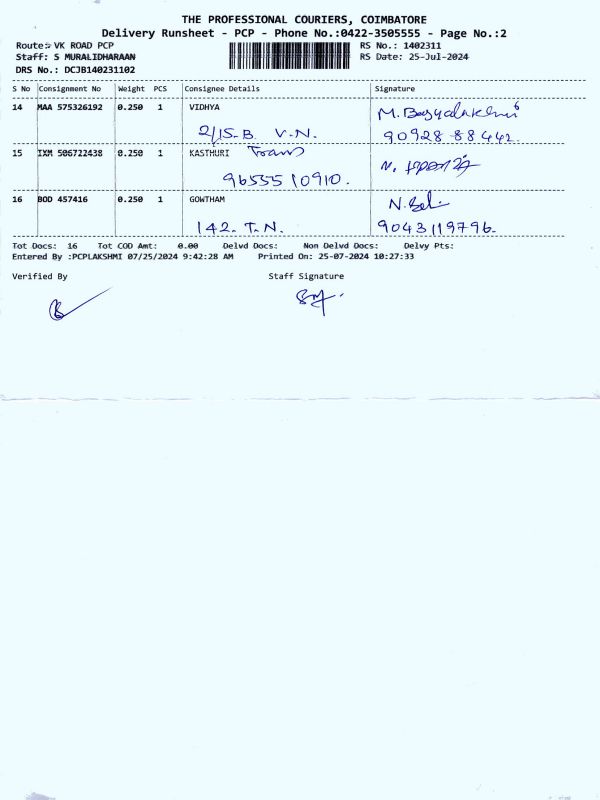 THE PROFESSIONAL COURIERS, COIMBATORE
Delivery Runsheet - PCP - Phone No.:0422-3505555 - Page No.:2
Route:- VK ROAD PCP RS No.: 1402311
Staff: S MURALIDHARAAN RS Date: 25-Jul-2024
DRS No.: DCJB140231102
S No Consignment No Weight PCS Consignee Details Signature
14 MAA 575326192 0.250 1 VIDHYA
2/15-B. V.N. 90928 88442.
15 IXM 506722438 0.250 1 KASTHURI Trans
96555 10910.
16 BOD 457416 0.250 1 GOWTHAM
142. T.N. 9043119796.
Tot Docs: 16 Tot COD Amt: 0.00 Delvd Docs: Non Delvd Docs: Delvy Pts:
Entered By :PCPLAKSHMI 07/25/2024 9:42:28 AM Printed On: 25-07-2024 10:27:33
Verified By Staff Signature